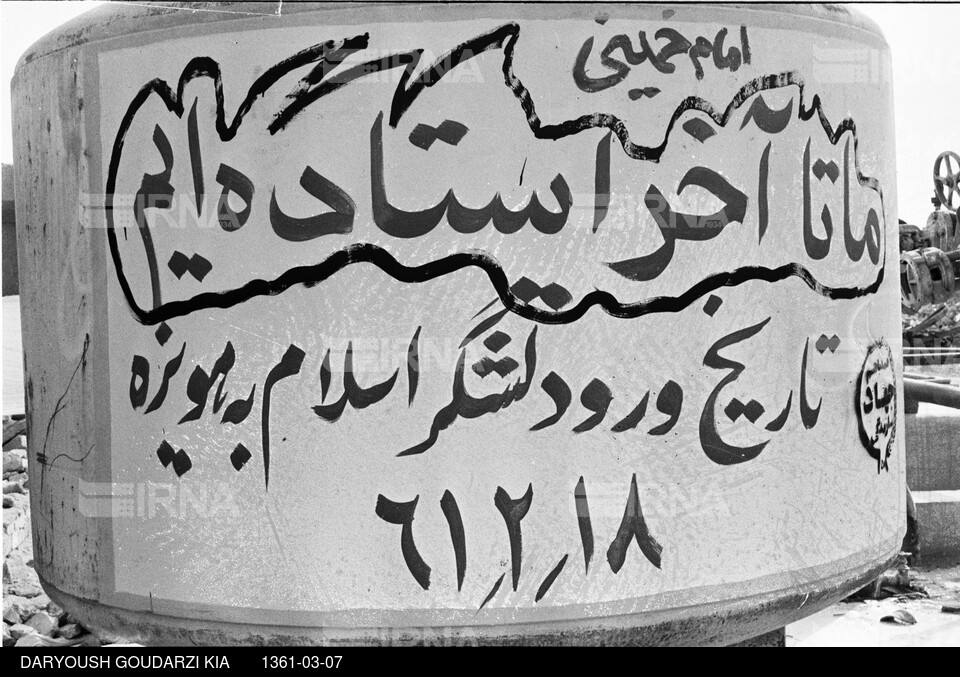 امام خمینی
ما تا آخر ایستاده ایم
تاریخ ورود لشگر اسلام به هویزه
۶۱٫۲٫۱۸
جهاد
IRNA
DARYOUSH GOUDARZI KIA 1361-03-07